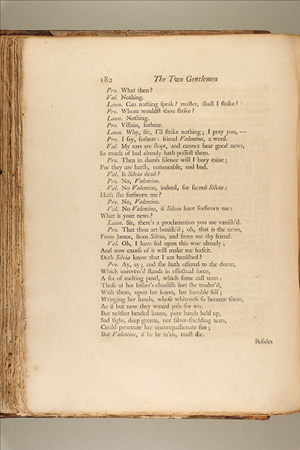 182 The Two Gentlemen
Pro. What then?
Val. Nothing.
Laun. Can nothing speak? master, shall I strike?
Pro. Whom wouldst thou strike?
Laun. Nothing.
Pro. Villain, forbear.
Laun. Why, Sir, I'll strike nothing; I pray you, —
Pro. I say, forbear: friend Valentine, a word.
Val. My ears are stopt, and cannot hear good news,
So much of bad already hath possest them.
Pro. Then in dumb silence will I bury mine;
For they are harsh, untuneable, and bad.
Val. Is Silvia dead?
Pro. No, Valentine.
Val. No Valentine, indeed, for sacred Silvia:
Hath she forsworn me?
Pro. No, Valentine.
Val. No Valentine, if Silvia have forsworn me:
What is your news?
Laun. Sir, there's a proclamation you are vanish'd.
Pro. That thou art banish'd; oh, that is the news,
From hence, from Silvia, and from me thy friend.
Val. Oh, I have fed upon this woe already;
And now excess of it will make me surfeit.
Doth Silvia know that I am banished?
Pro. Ay, ay; and she hath offered to the doom,
Which unrevers'd stands in effectual force,
A sea of melting pearl, which some call tears:
Those at her father's churlish feet she tender'd,
With them, upon her knees, her humble self;
Wringing her hands, whose whiteness so became them,
As if but now they waxed pale for woe.
But neither bended knees, pure hands held up,
Sad sighs, deep groans, nor silver-shedding tears,
Could penetrate her uncompassionate sire;
But Valentine, if he be ta'en, must die.
Besides